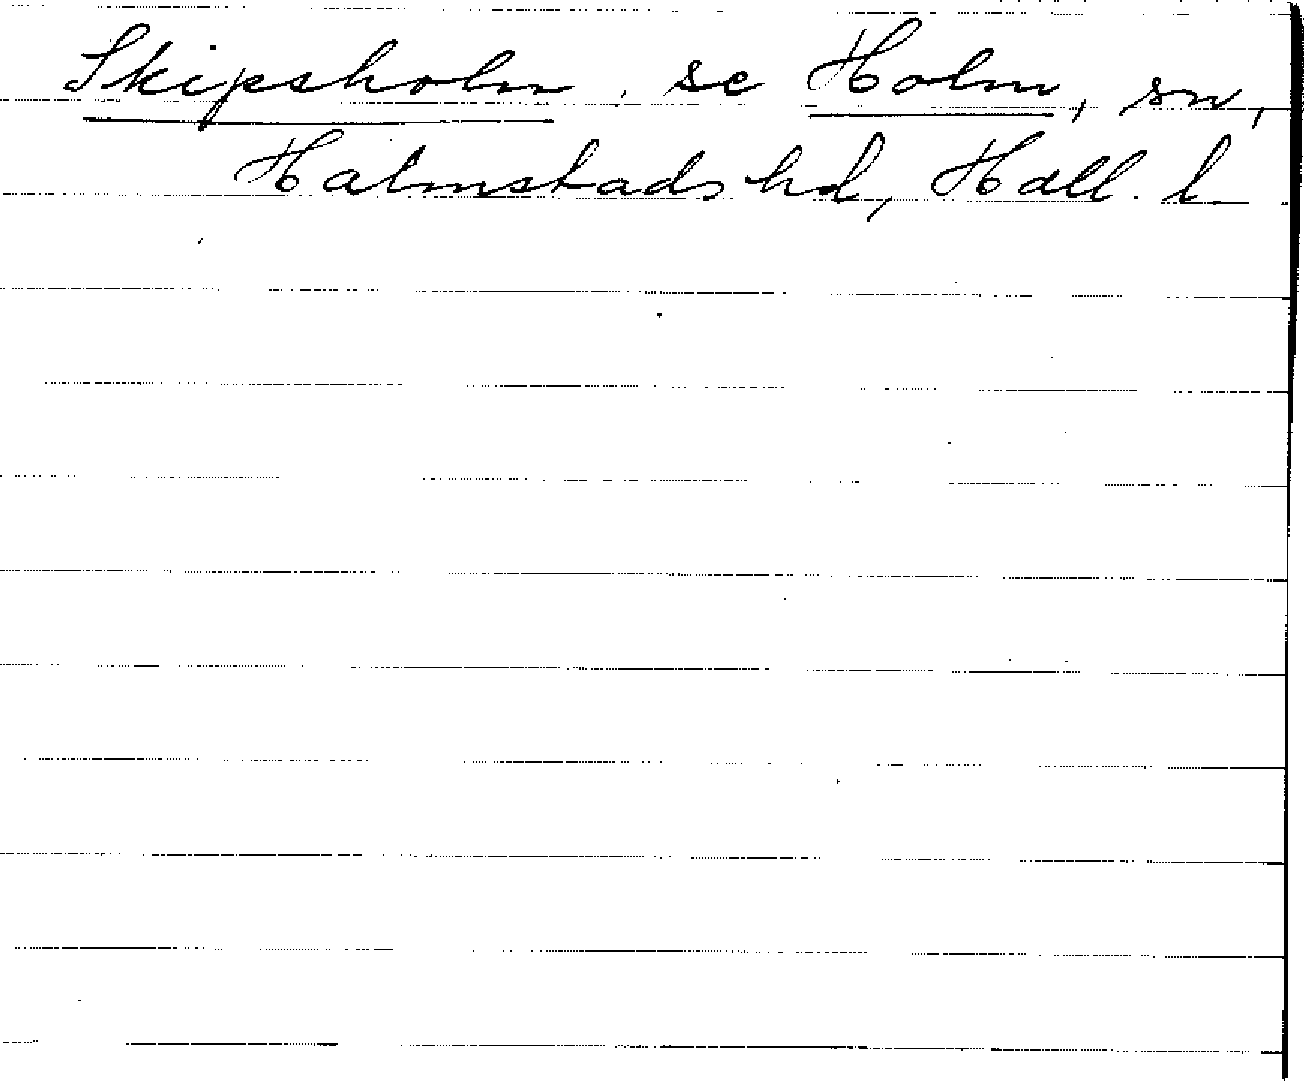 Skipsholm, se Holm, sn,
Halmstads hd, Hall. l.